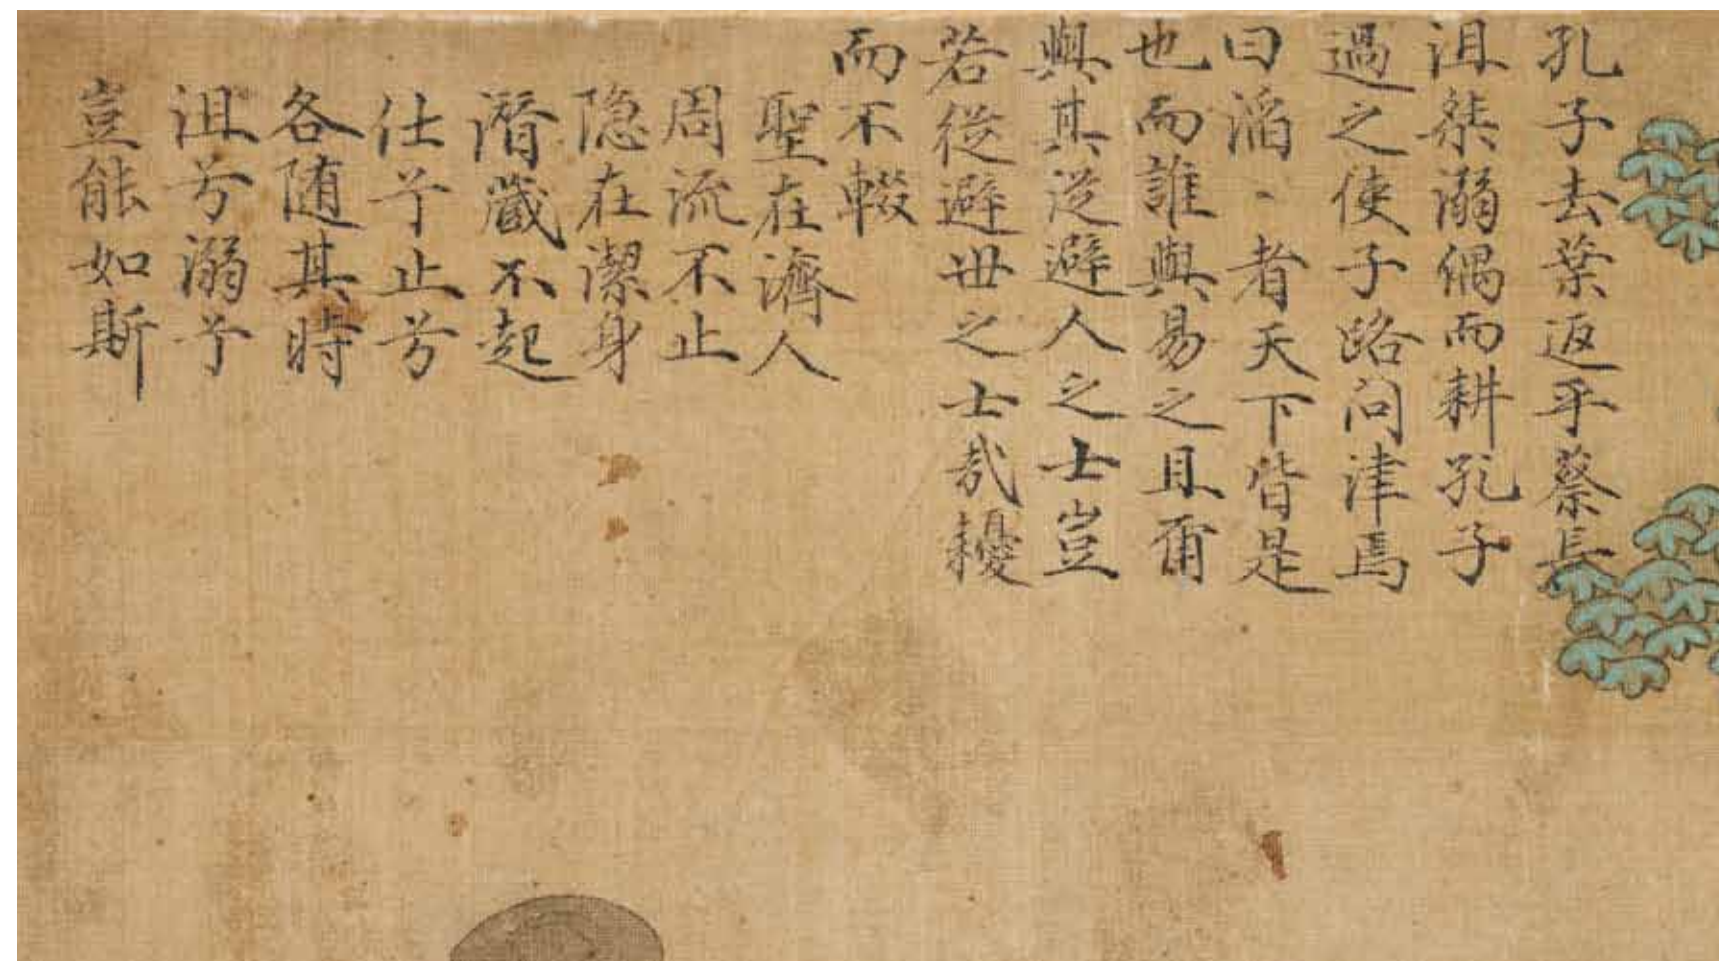 孔子去葉返乎蔡長
沮桀溺偶而耕孔子
過之使子路問津焉
曰滔、者天下皆是
也而誰與易之且爾
與其從避人之士豈
若從避世之士哉耰
而不輟
聖在濟人
周流不止
隐在潔身
潛藏不起
仕兮止兮
各随其時
沮兮溺兮
豈能如斯